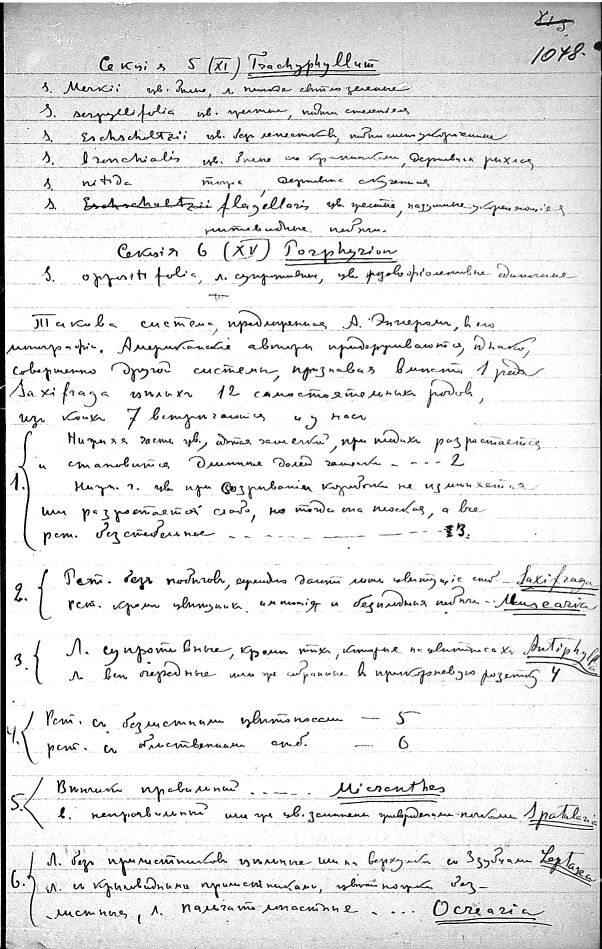 XI 5
1048.
Секція 5 (XI) Trachyphyllum
S. Merkii цв. белые, л.
S. serpyllifolia цв. желтые,
S. Eschscholtzii цв. без лепестков,
S. bronchialis цв. белые съ крапинками, дерновина рыхлая
S. nitida тоже, дерновина
S. Eschscholtzii flagellaris цв. желтые,
нитевидные побеги.
Секція 6 (XV) Porphyrion
S. oppositifolia, л. супротивные, цв. розовофіолетовые одиночные
Такова система, предложенная А. Энглеромъ, въ его
монографіи. Американскіе авторы придерживаются, однако,
совершенно другой системы, признавая вместо 1 рода
Saxifraga целыхъ 12 самостоятельныхъ родовъ,
изъ коихъ 7 встречаются и у насъ
1. Нижняя часть цв., при плодахъ разростается
и становится длиннее долей чашечки - - - - 2
Нижн. ч. цв. при созреваніи коробочки не изменяется
или разростается слабо, но тогда она плоская, а все
раст. безстебельное - - - - 3.
2. Раст. безъ побеговъ, - Saxifraga
раст. кроме и безплодные побеги - Muscaria
3. Л. супротивные, кроме техъ, которые на цветоносахъ Antiphylla
Л. все очередные или же собранные въ прикорневую розетку 4
4. Раст. съ безлистными цветоносами — 5
раст. съ облиственными стеб. — 6
5. Венчикъ правильный - - - - Micranthes
В. неправильный или же цв. заменены почками Spatularia
6. Л. безъ прилистниковъ цельные или на верхушке съ 3 зубчами Leptasea
Л. съ крыловидными прилистниками, цветоножка без-
листная, л. пальчато лопастные - - - - Ocrearia